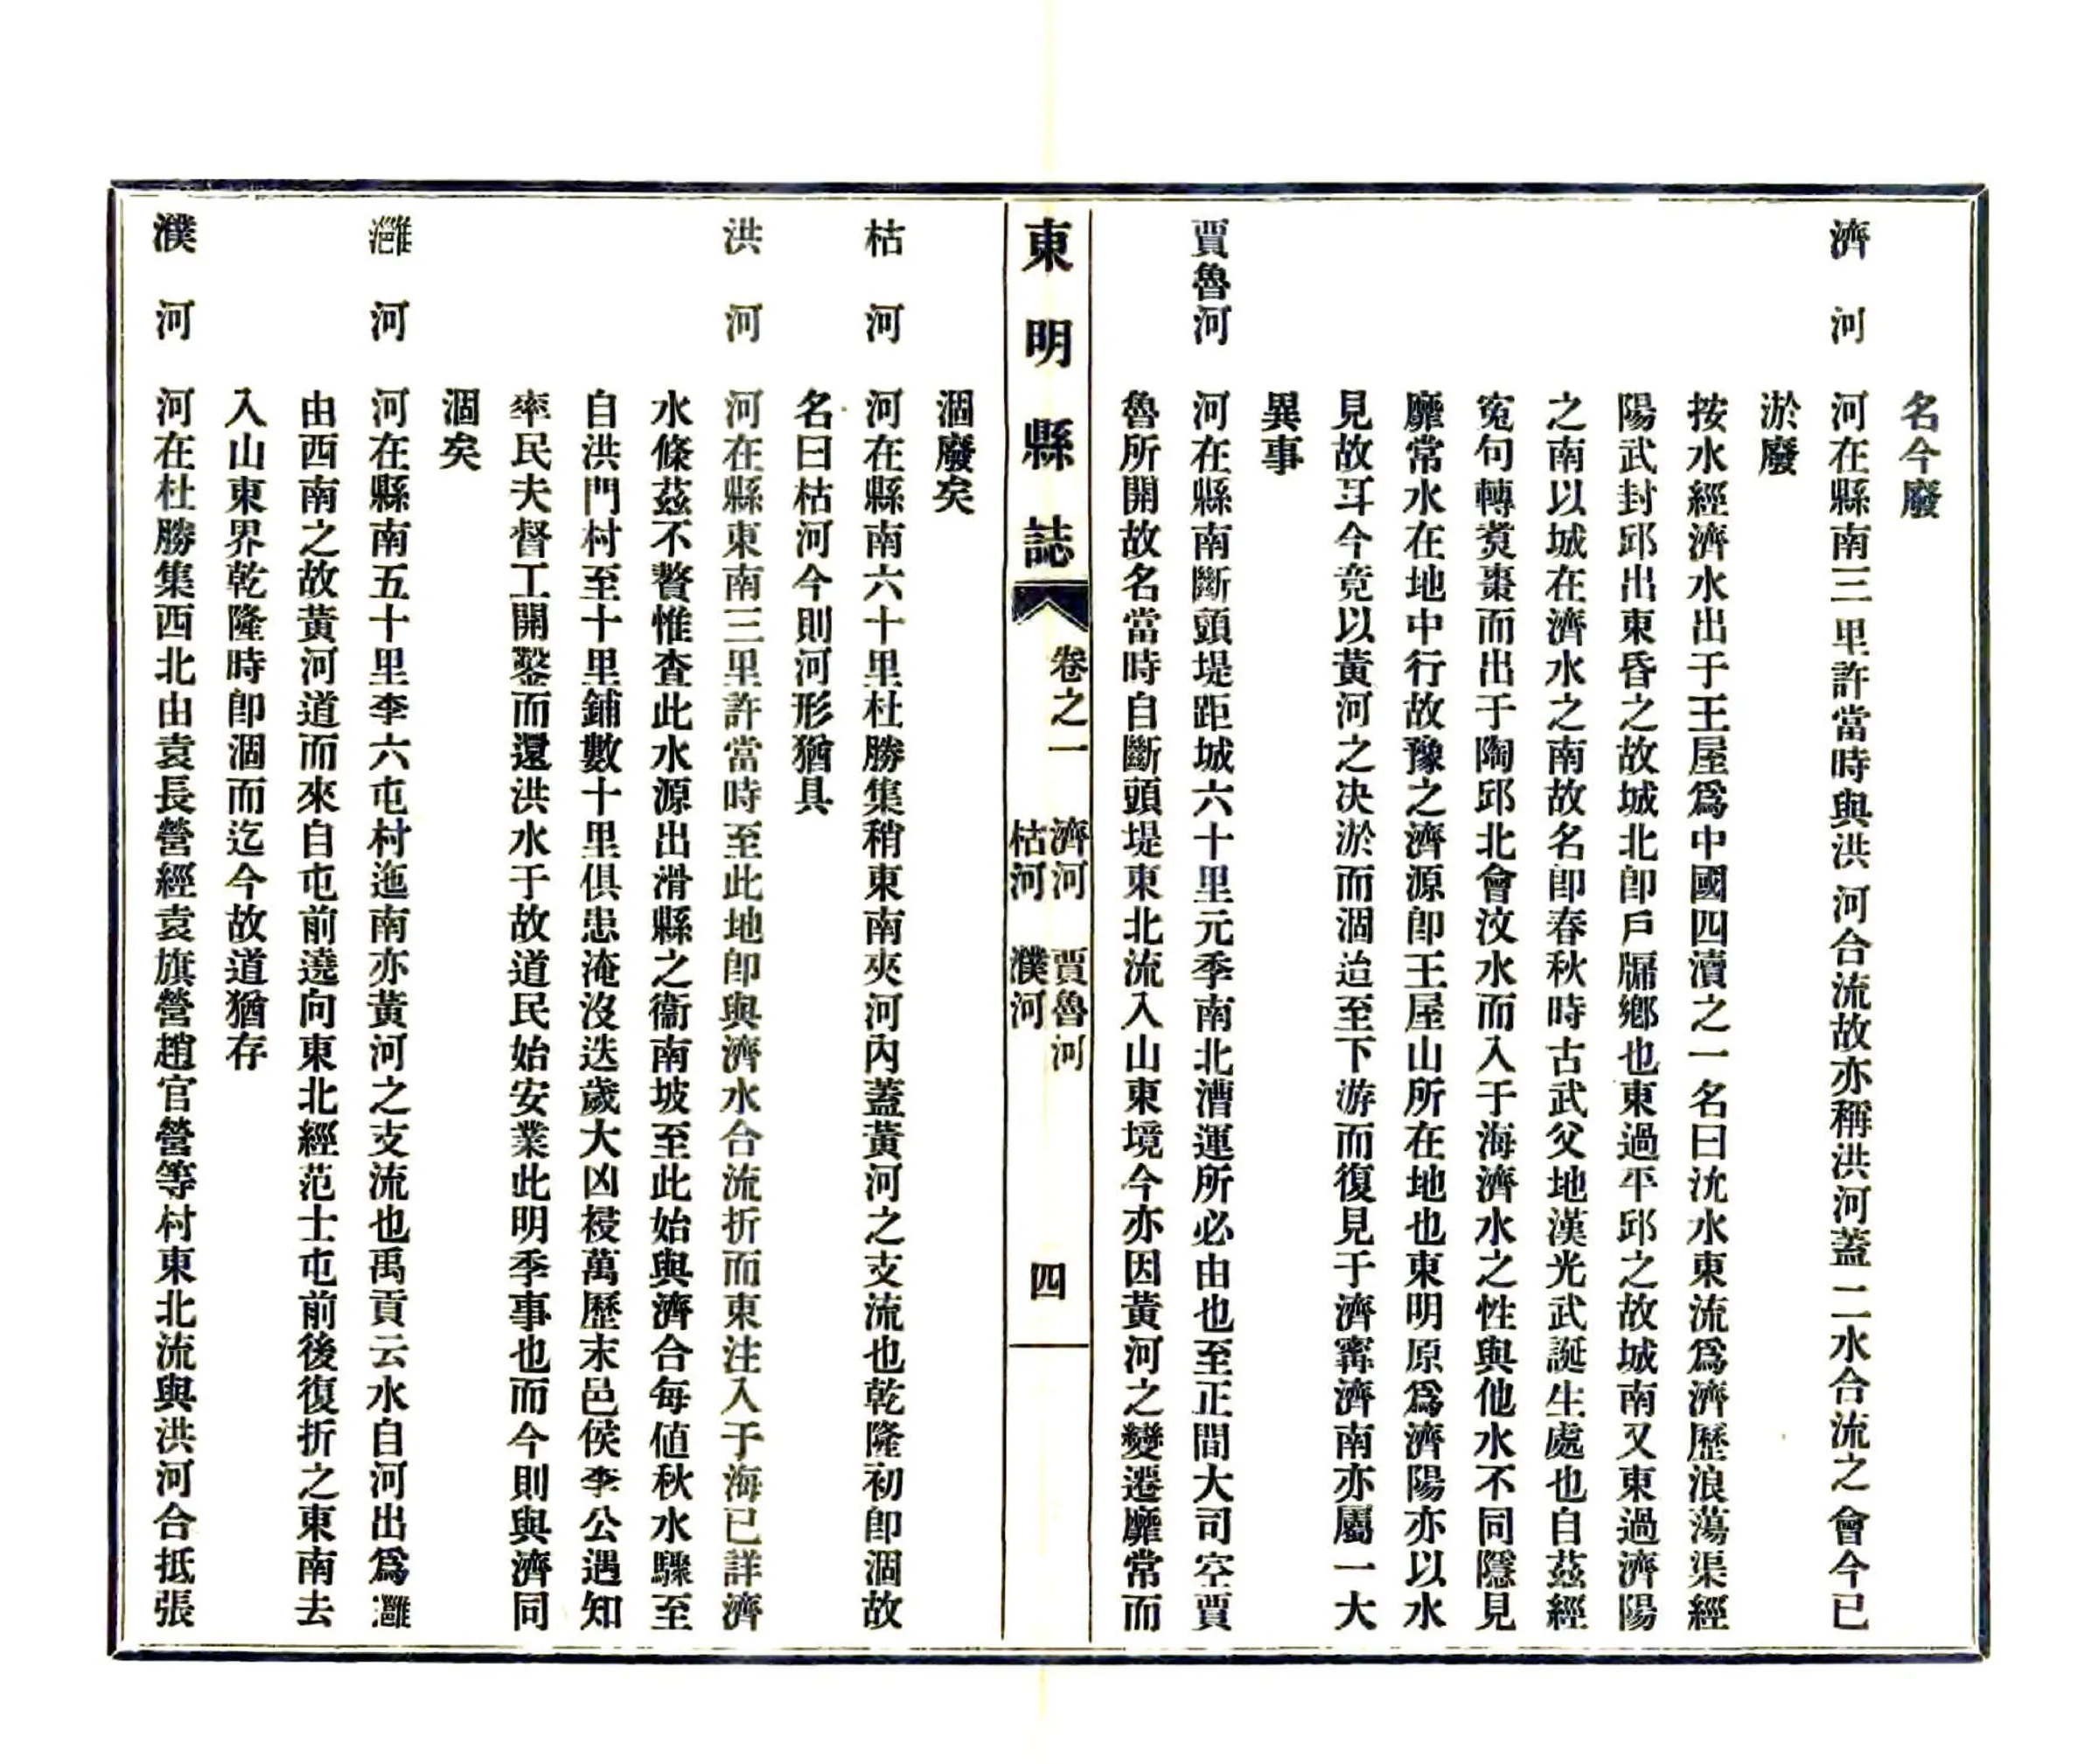 名今廢
濟河　河在縣南三里許當時與洪河合流故亦稱洪河蓋二水合流之會今已
淤廢
按水經濟水出于王屋爲中國四瀆之一名曰沇水東流爲濟歷浪蕩渠經
陽武封邱出東昏之故城北卽戶牖鄉也東過平邱之故城南又東過濟陽
之南以城在濟水之南故名卽春秋時古武父地漢光武誕生處也自茲經
冤句轉煑棗而出于陶邱北會汶水而入于海濟水之性與他水不同隱見
靡常水在地中行故豫之濟源卽王屋山所在地也東明原爲濟陽亦以水
見故耳今竟以黃河之决淤而涸迨至下游而復見于濟甯濟南亦屬一大
異事
賈魯河　河在縣南斷頭堤距城六十里元季南北漕運所必由也至正間大司空賈
魯所開故名當時自斷頭堤東北流入山東境今亦因黃河之變遷靡常而
東明縣誌　卷之一　濟河　賈魯河　枯河　濮河　四
涸廢矣
枯河　河在縣南六十里杜勝集稍東南夾河內蓋黃河之支流也乾隆初卽涸故
名曰枯河今則河形猶具
洪河　河在縣東南三里許當時至此地卽與濟水合流折而東注入于海已詳濟
水條茲不贅惟查此水源出滑縣之衞南坡至此始與濟合每値秋水驟至
自洪門村至十里鋪數十里俱患淹沒迭歲大凶祲萬歷末邑侯李公遇知
率民夫督工開鑿而還洪水于故道民始安業此明季事也而今則與濟同
涸矣
灉河　河在縣南五十里李六屯村迤南亦黃河之支流也禹貢云水自河出爲灉
由西南之故黃河道而來自屯前遶向東北經范士屯前後復折之東南去
入山東界乾隆時卽涸而迄今故道猶存
濮河　河在杜勝集西北由袁長營經袁旗營趙官營等村東北流與洪河合抵張